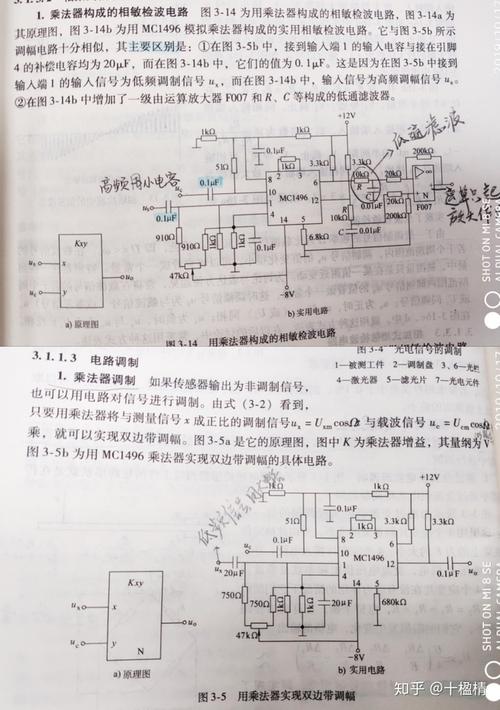 1. 乘法器构成的相敏检波电路 图 3-14 为用乘法器构成的相敏检波电路，图 3-14a 为
其原理图，图 3-14b 为用 MC1496 模拟乘法器构成的相敏检波电路的实用电路。它与图 3-5b 所示
调幅电路十分相似，其主要区别是：①在图 3-5b 中，接到输入端 1 的输入电容与接在引脚
4 的补偿电容均为 20μF，而在图 3-14b 中，它们的值为 0.1μF。这是因为在图 3-5b 中接到
输入端 1 的输入信号为低频调制信号 uₓ，而在图 3-14b 中，输入信号为高频调幅信号 uₛ。
②在图 3-14b 中增加了一级由运算放大器 F007 和 R、C 等构成的低通滤波器。
+12V
低通滤波
1kΩ
1kΩ
51Ω
0.1μF
1kΩ
3.3kΩ
3.3kΩ
200kΩ
高频用小电容
0.1μF
0.1μF
MC1496
10kΩ
20kΩ
20kΩ
0.01μF
F007
910Ω
910Ω
1kΩ
1kΩ
0.1μF
6.8kΩ
10kΩ
0.01μF
200kΩ
47kΩ
-8V
Kxy
a) 原理图
b) 实用电路
图 3-14 用乘法器构成的相敏检波电路
3.1.1.3 电路调制
图 3-4 光电信号的调制
1. 乘法器调制 如果传感器输出为非调制信号，
1—被测工件 2—调制盘 3、6—光栏
也可以用电路对信号进行调制。由式（3-2）看到，
4—激光器 5—滤光片 7—光电元件
只要用乘法器将与测量信号 x 成正比的调制信号 uₓ = UₓₘcosΩt 与载波信号 u_c = U_cmcosω
乘，就可以实现双边带调幅。图 3-5a 是它的原理图，图中 K 为乘法器增益，其量纲为 V
图 3-5b 为用 MC1496 乘法器实现双边带调幅的具体电路。
+12V
1kΩ
1kΩ
51Ω
0.1μF
1kΩ
3.3kΩ
3.3kΩ
20μF
0.1μF
MC1496
0.1μF
750Ω
750Ω
1kΩ
1kΩ
20μF
680kΩ
47kΩ
-8V
Kxy
x
y
N
a) 原理图
b) 实用电路
图 3-5 用乘法器实现双边带调幅
SHOT ON MI 8 SE
SHOT ON MI 8 SE
知乎 @十楹精